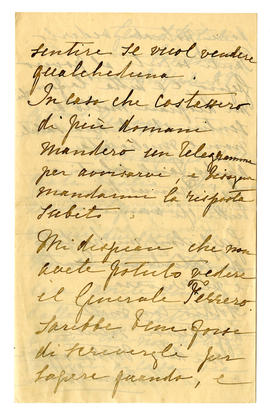 sentire se vuol vendere
qualcheduna.
In caso che costassero
di più domani
manderò un telegramma
per avvisarvi, e bisogna
mandarmi la risposta
subito.
Mi dispiace che non
avete potuto vedere
il Generale Ferrero
sarebbe bene forse
di scrivergli per
sapere quando, e